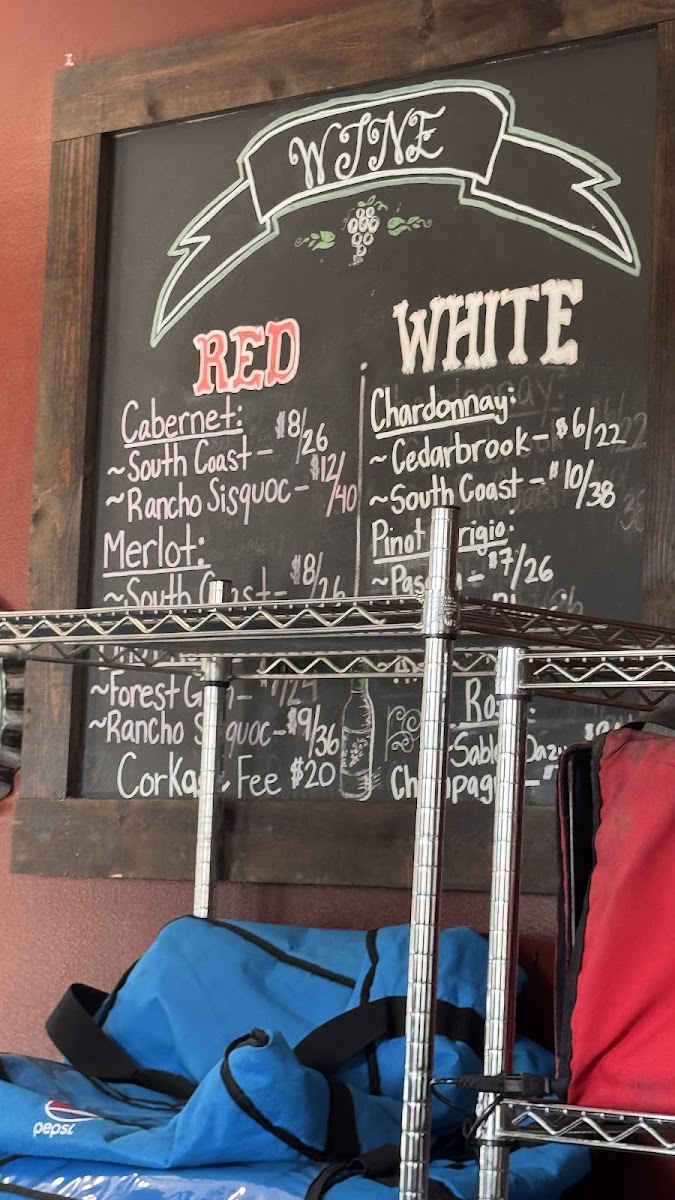 WINE
RED
Cabernet:
~South Coast - $8/26
~Rancho Sisquoc - $12/40
Merlot:
~South Coast - $8/26
~Forest G
~Rancho Sisquoc - $9/36
Corkage Fee $20
WHITE
Chardonnay:
~Cedarbrook - $6/22
~South Coast - $10/38
Pinot Grigio:
- $7/26
pepsi